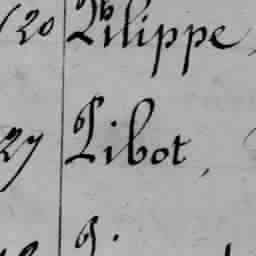 120 Pilippe,
27 Pibot,